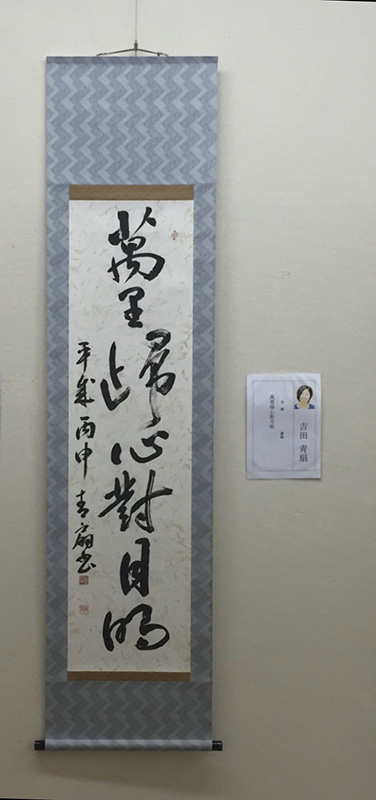 萬里歸心對月明
平成丙申 青扇書
吉田 青扇
萬里歸心對月明